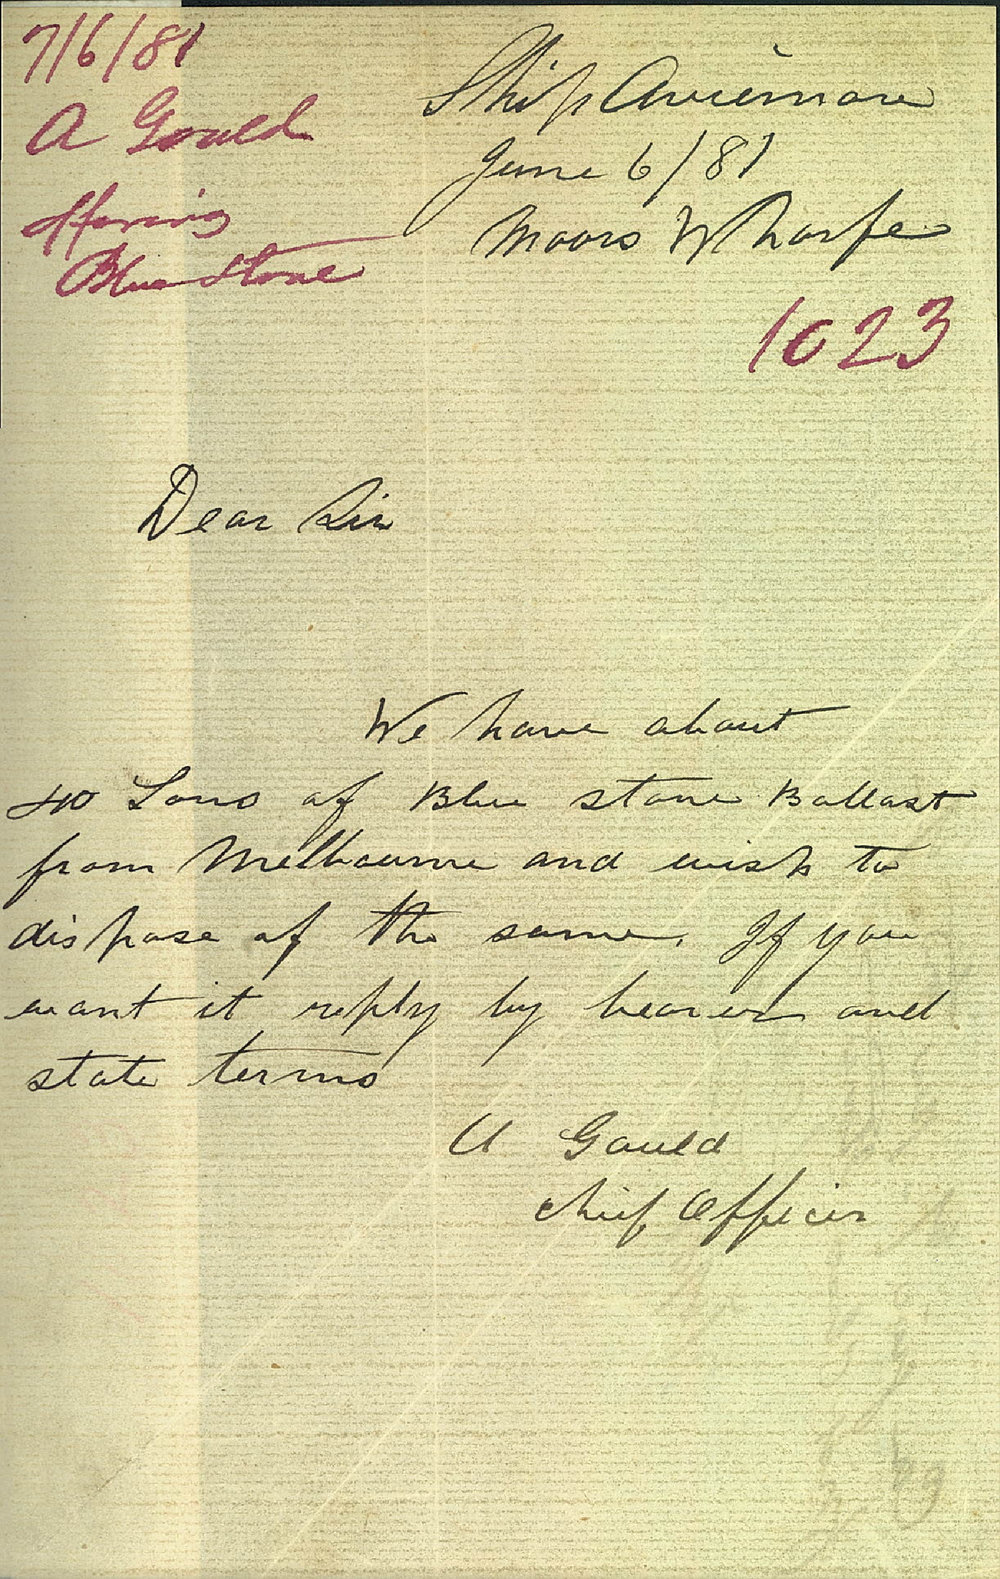 7/6/81
A Gould
Offering
Blue Stone
Ship Aviemore
June 6/81
Moors Wharfe
1023
Dear Sir
We have about
40 Tons of Blue stone Ballast
from Melbourne and wish to
dispose of the same. If you
want it reply by bearer and
state terms
A Gould
chief Officer